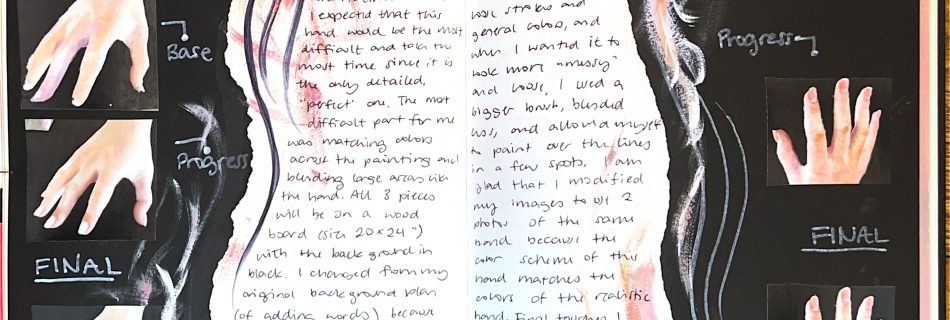 Base
Progress
FINAL
I expected that this
hand would be the most
difficult and take the
most time since it is
the only detailed,
"perfect" one. The most
difficult part for me
was matching colors
across the painting and
blending large areas like
the hand. All 3 pieces
will be on a wood
board (size 20x24")
with the background in
black. I changed from my
original background plan
(of adding words) because
loose strokes and
general colors, and
when I wanted it to
look more "messy"
and loose, I used a
bigger brush, blended
less, and allowed myself
to paint over the lines
in a few spots. I am
glad that I modified
my images to use 2
photos of the same
hand because the
color scheme of this
hand matches the
colors of the realistic
hand. Final touches I
Progress
FINAL